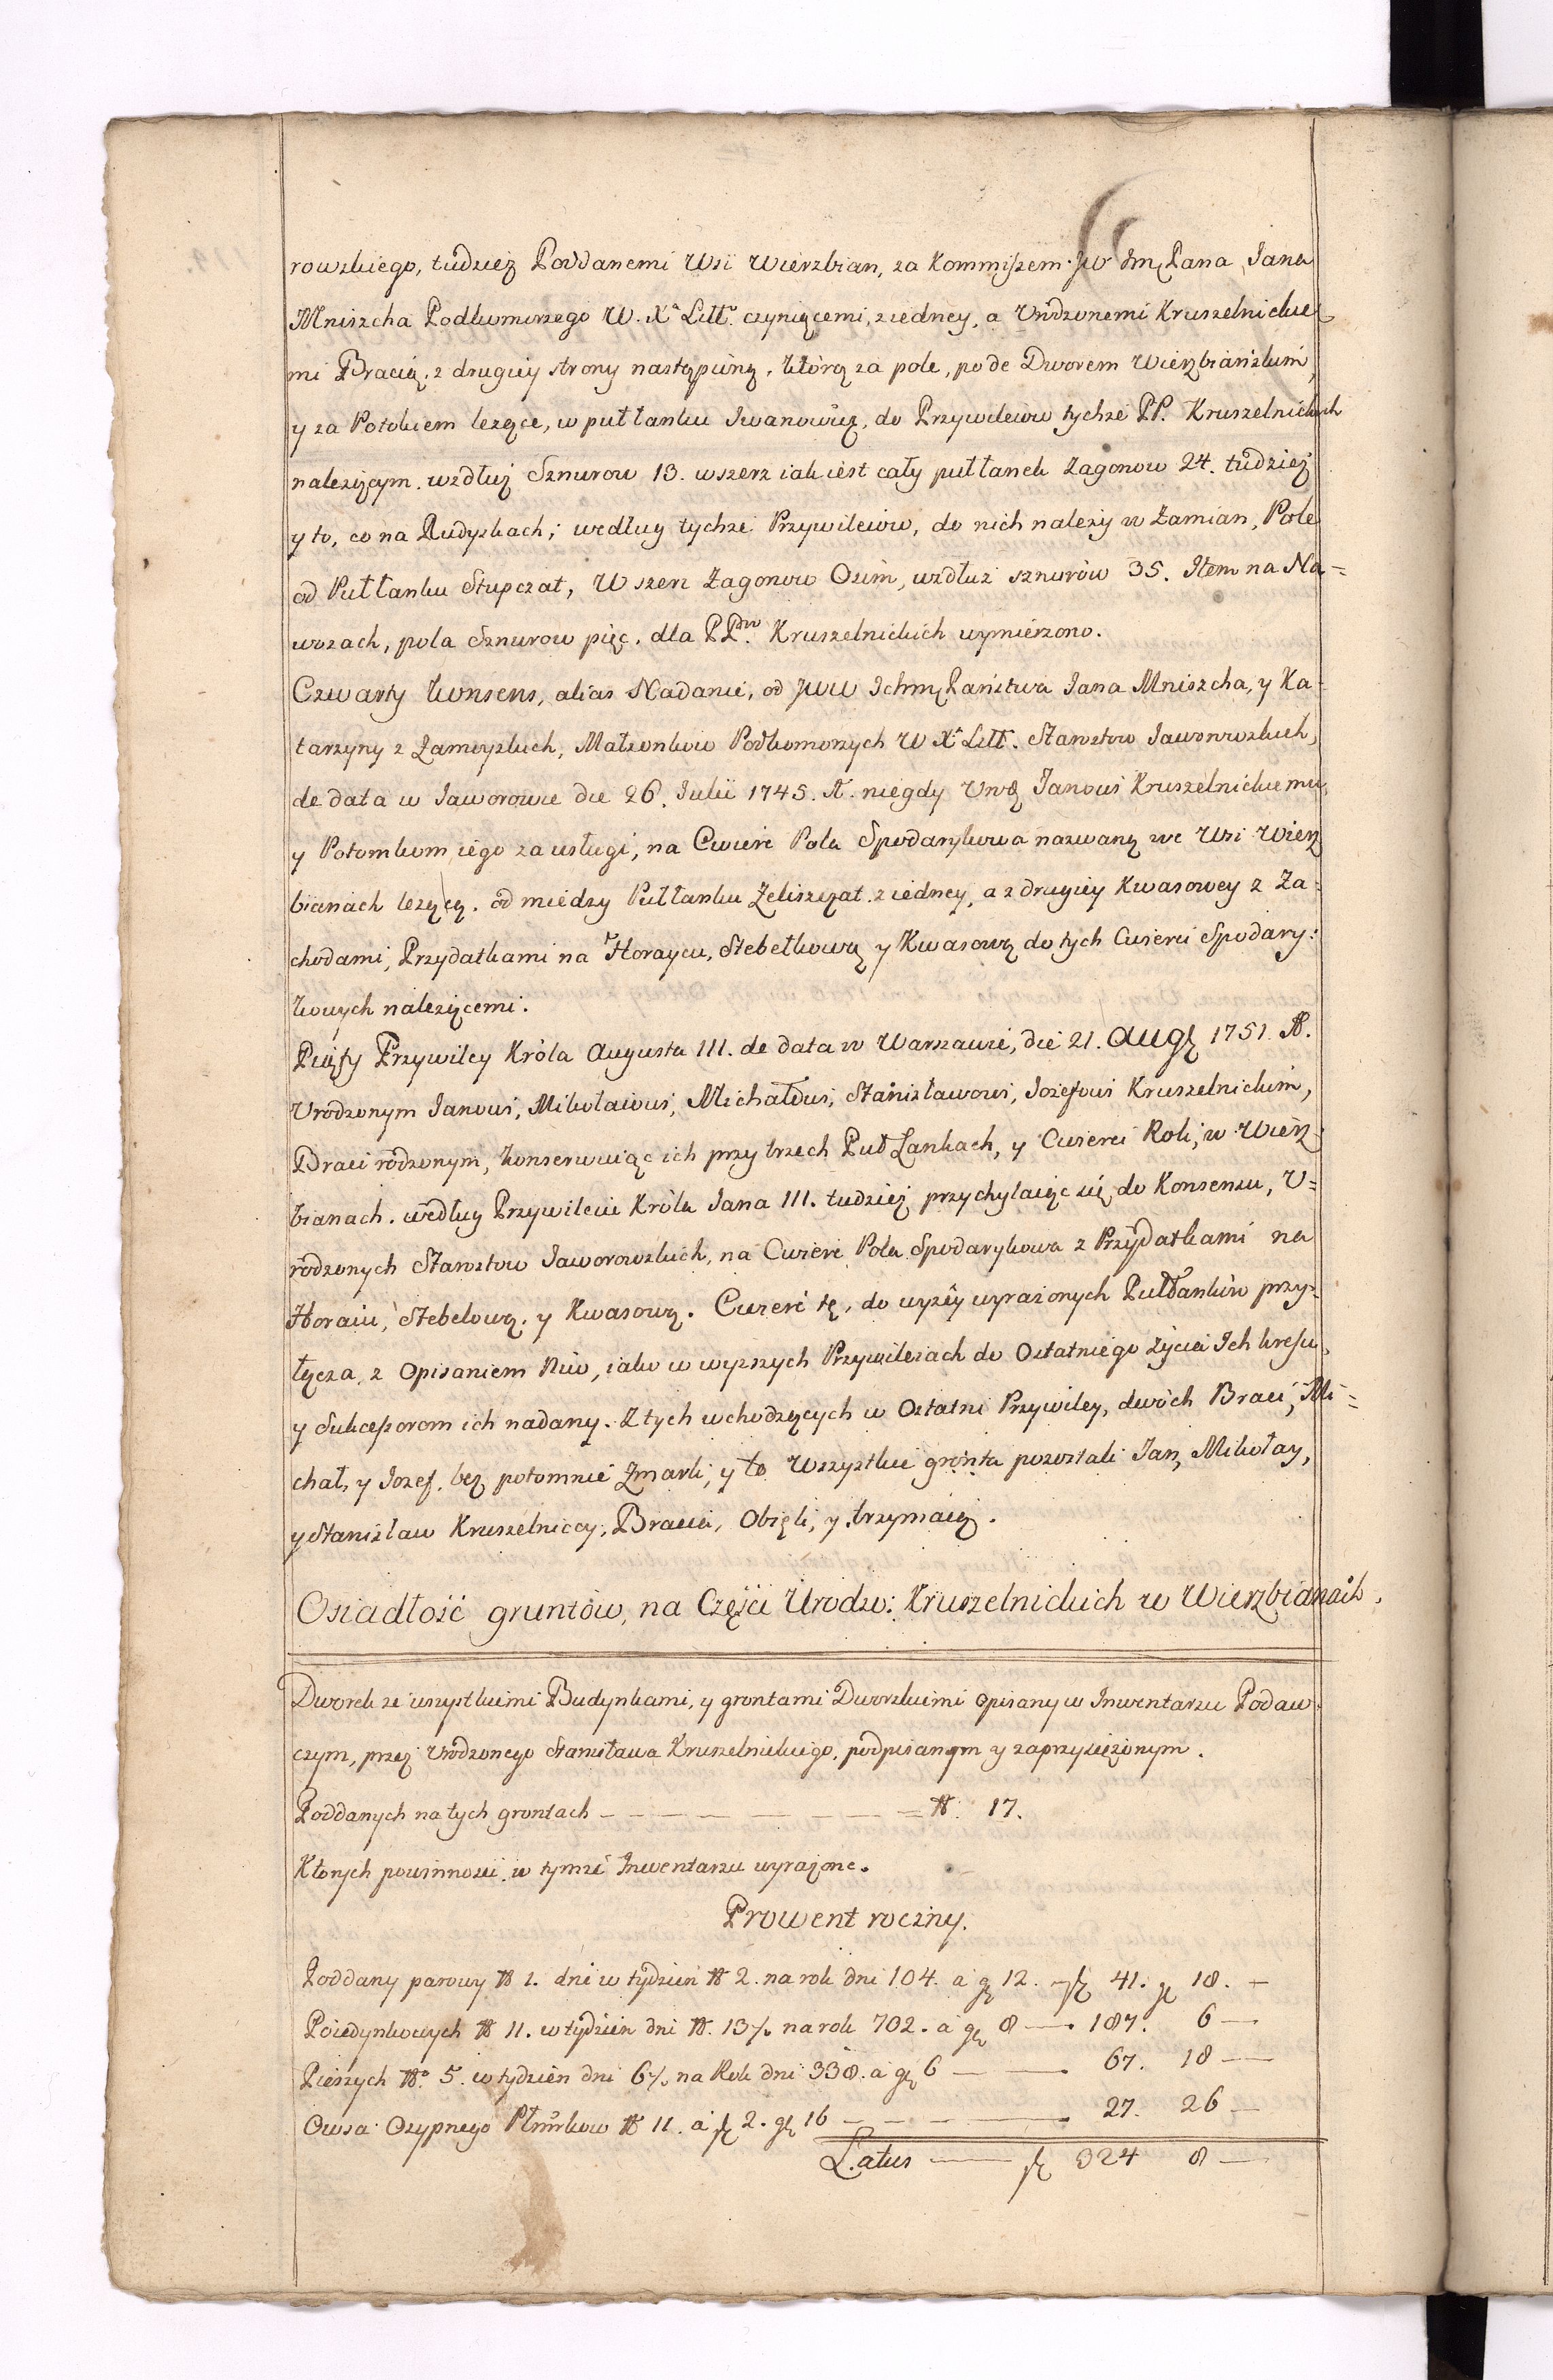 rowskiego, tudziez Poddanemi Wsi Wierzbian, za Kommissem JW Jmę Pana Jana
Mniszcha Podkomorzego W. Xa Litt. czyniącemi, z iedney, a Urodzonemi Kruszelnickie
mi Bracią, z drugiey strony nastąpioną, ktorą za pole, pode Dworem Wierzbiańskim,
y za Potokiem leżące, w pułłanku Iwanowską, do Przywilewu tychże PP. Kruszelnickich
należącym, wzdłuż Sznurow 13. wszerz iak iest cały pułłanek Zagonow 24. tudzież
y to, co na Rudyskach; według tychże Przywilewow, do nich należy w Zamian, Pole
od Pułłanku Stupczat, Wszerz Zagonow Osim, wzdłuż sznurów 35. Item na Na=
wozach, pola Sznurow pięc, dla PPow Kruszelnickich wymierzono.
Czwarty konsens, alias Nadanie, od JWW Ichmę Państwa Jana Mniszcha, y Ka=
tarzyny z Zamoyskich, Małżonkow Podkomorzych W Xa Litt. Starostow Jaworowskich,
de data w Jaworowie die 26. Julii 1745. A. niegdy Urodz Janowi Kruszelnickiemu,
y Potomkom iego za usługi, na Cwierć Pola Spodarykowa nazwaną we Wsi Wierz
bianach leżącą, od miedzy Pułłanku Zeliszczat z iedney, a z drugiey Kwasowey z Za=
chodami, Przydatkami na Horaycu, Stebelkową y Kwasową do tych Cwierci Spodary:
kowych należącemi.
Piąty Przywiley Króla Augusta III. de data w Warszawie, die 21. Augę 1751 A.
Urodzonym Janowi, Mikołaiowi, Michałowi, Stanisławowi, Jozefowi Kruszelnickim,
Braci rodzonym, konserwuiąc ich przy trzech Puł Łankach, y Cwierci Roli, w Wierz=
bianach, według Przywileiu Króla Jana III. tudzież przychylaiąc się do Konsensu, U=
rodzonych Starostow Jaworowskich, na Cwierć Pola Spodarykowa z Przydatkami na
Horaiu, Stebelową, y Kwasową. Cwierć tę, do wyżey wyrażonych Pułłanków przy=
łącza, z Opisaniem Niw, iako w wyższych Przywileiach do Ostatniego życia Ich kresu,
y Sukcessorom ich nadany. Z tych wchodzących w Ostatni Przywiley, dwóch Braci, Mi=
chał, y Jozef, bez potomnie Zmarli, y to Wszystkie gronta pozostali Jan, Mikołay,
y Stanisław Kruszelniccy, Bracia, Obięli, y trzymaią.
Osiadłość gruntów, na Części Urodzo: Kruszelnickich w Wierzbianach.
Dworek ze wszystkiemi Budynkami, y grontami Dworskiemi opisany w Inwentarzu Podaw=
czym, przez Urodzonego Stanisława Kruszelnickiego, podpisanym y zaprzysiężonym.
Poddanych na tych grontach — N. 17.
Których powinności w tymże Inwentarzu wyrażone.
Prowent roczny.
Poddany parowy N 1. dni w tydzień N 2. na rok dni 104. a gę 12. — fl 41. gę 18. —
Poiedynkowych N 11. w tydzień dni N. 13½ na rok 702. a gę 8 — 187. 6 —
Pieszych No. 5. w tydzień dni 6½ na Rok dni 338. a gę 6 — 67. 18 —
Owsa Osypnego Płmirkow N 11. a fl 2. gę 16 — 27. 26 —
Latus — fl 324 8 —